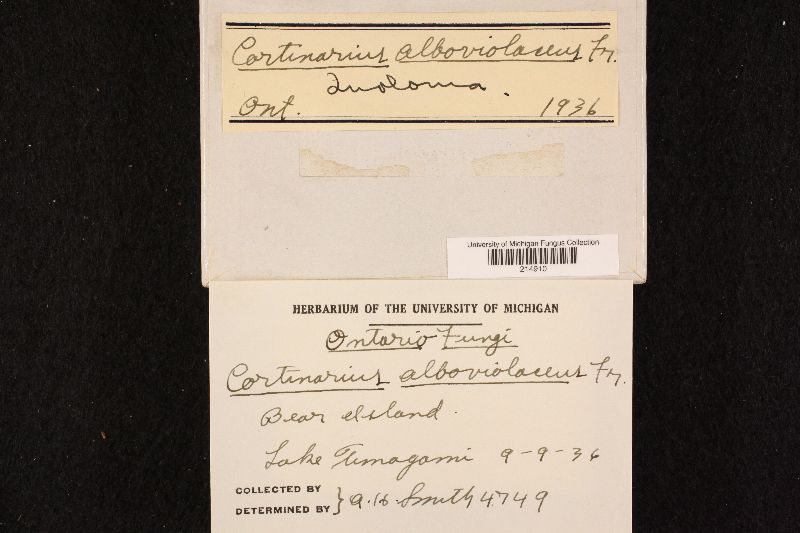 Cortinarius alboviolaceus Fr.
Inoloma.
Ont. 1936
University of Michigan Fungus Collection
214910
HERBARIUM OF THE UNIVERSITY OF MICHIGAN
Ontario Fungi
Cortinarius alboviolaceus Fr.
Bear Island.
Lake Timagami 9-9-36
COLLECTED BY
DETERMINED BY } A. H. Smith 4749